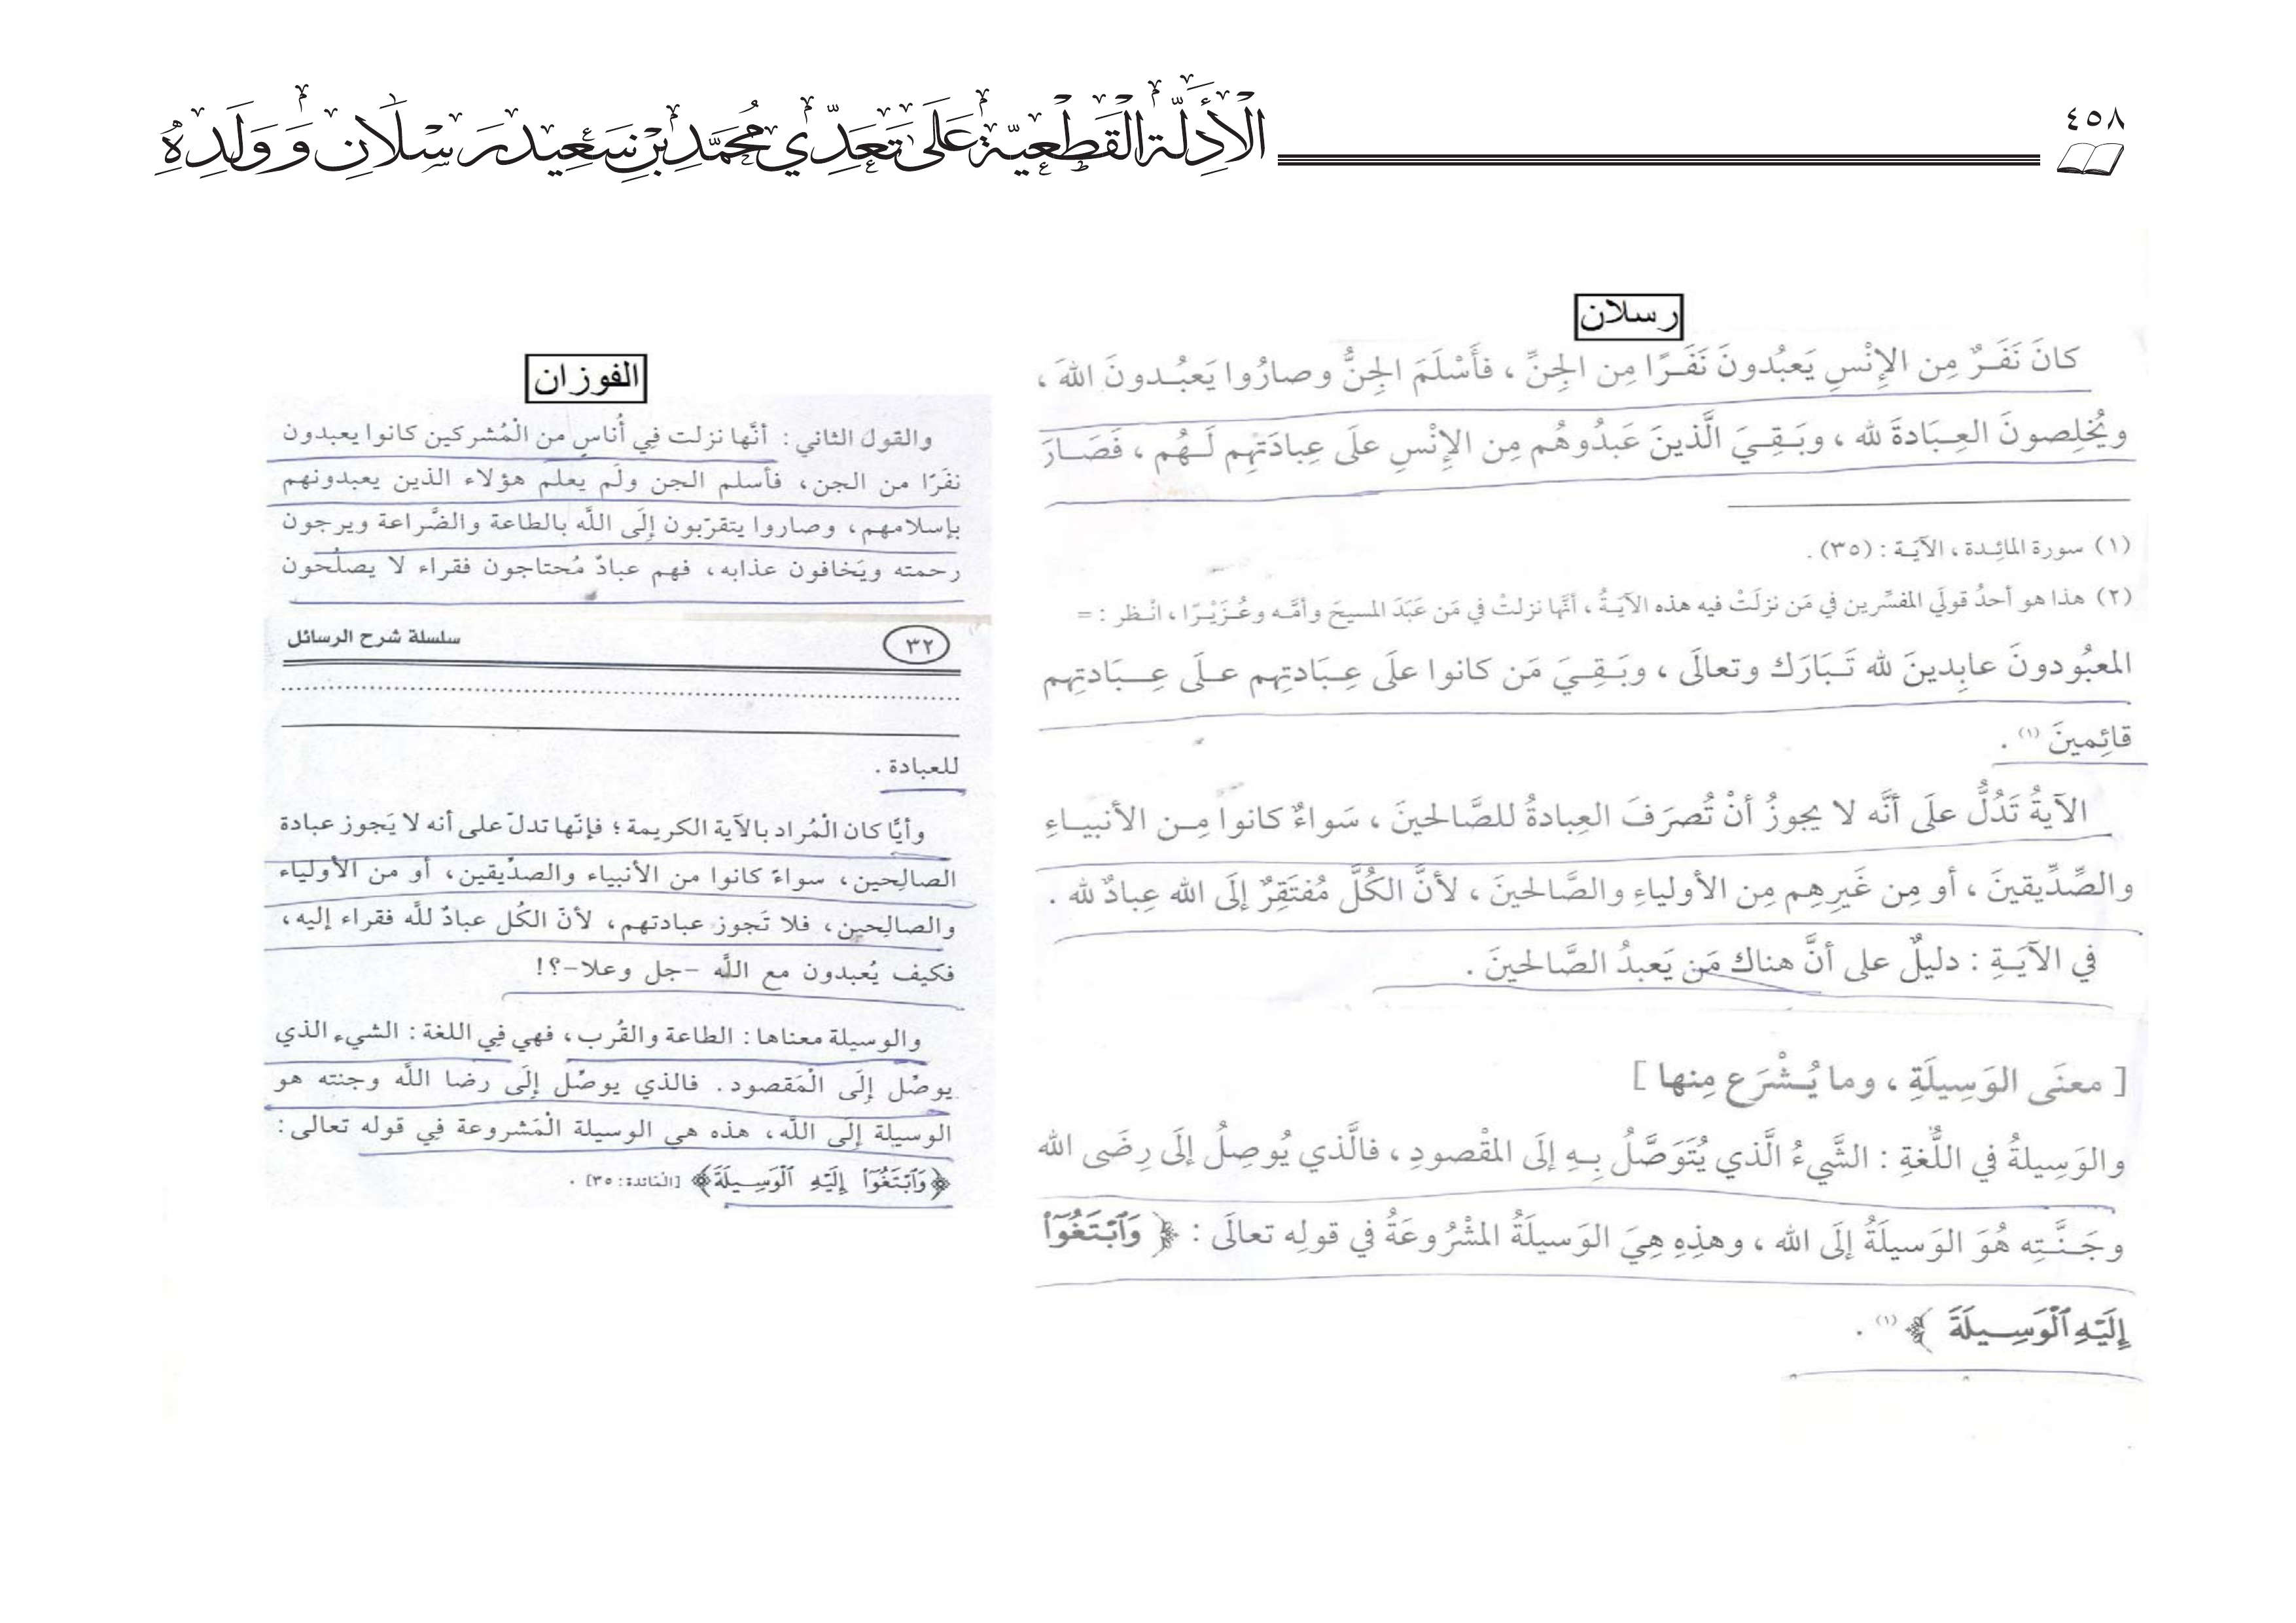 ٤٥٨
الأَدِلَّة القَطْعِيَّة عَلَى تَعَدِّي مُحَمَّد بْن سَعِيد رَسْلَان وَوَلَدِهِ
رسلان
كانَ نَفَـرٌ مِن الإِنْسِ يَعبُدونَ نَفَـرًا مِن الجِنِّ ، فأَسْلَمَ الجِنُّ وصارُوا يَعبُـدونَ اللهَ ،
ويُخلِصونَ العِـبَادةَ لله ، وبَـقِـيَ الَّذينَ عَبدُوهُم مِن الإِنْسِ علَى عِبادَتِهِم لَـهُم ، فَصَـارَ
(١) سورة المائِـدة ، الآيَـة : (٣٥) .
(٢) هذا هو أحدُ قولَي المفسِّرين في مَن نزلَتْ فيه هذه الآيَـةُ ، أنَّها نزلتْ في مَن عَبَدَ المسيحَ وأمَّـه وعُـزَيْـرًا ، انْـظر : =
المعبُودونَ عابِدينَ لله تَـبَارَك وتعالَى ، وبَـقِـيَ مَن كانوا علَى عِـبَادتِهِم عـلَى عِــبَادتِهِم
قائِمينَ (١) .
الآيةُ تَدُلُّ علَى أنَّه لا يجوزُ أنْ تُصرَفَ العِبادةُ للصَّالحينَ ، سَواءٌ كانوا مِـن الأنبيـاءِ
والصِّدِّيقينَ ، أو مِن غَيرِهِم مِن الأولياءِ والصَّالحينَ ، لأنَّ الكُلَّ مُفتَقِرٌ إلَى الله عِبادٌ لله .
في الآيَـةِ : دليلٌ على أنَّ هناك مَن يَعبدُ الصَّالحينَ .
[ معنَى الوَسِيلَةِ ، وما يُـشْرَع مِنها ]
والوَسِيلةُ في اللُّغةِ : الشَّيءُ الَّذي يُتَوَصَّلُ بِـهِ إلَى المقْصودِ ، فالَّذي يُوصِلُ إلَى رِضَى الله
وجَـنَّـتِه هُوَ الوَسيلَةُ إلَى الله ، وهذِهِ هِيَ الوَسيلَةُ المشْرُوعَةُ في قولِه تعالَى : ﴿ وَٱبْتَغُوٓا۟
إِلَيْهِ ٱلْوَسِـيلَةَ ﴾ (١) .
الفوزان
والقول الثاني : أنَّها نزلت فِي أُناسٍ من الْمُشركين كانوا يعبدون
نفَرًا من الجن، فأسلم الجن ولَم يعلم هؤلاء الذين يعبدونهم
بإسلامهم، وصاروا يتقرّبون إلَى اللَّه بالطاعة والضَّراعة ويرجون
رحمته ويَخافون عذابه، فهم عبادٌ مُحتاجون فقراء لا يصلُحون
٣٢
سلسلة شرح الرسائل
للعبادة .
وأيًّا كان الْمُراد بالآية الكريمة ؛ فإنّها تدلّ على أنه لا يَجوز عبادة
الصالِحين، سواءً كانوا من الأنبياء والصدِّيقين، أو من الأولياء
والصالِحين، فلا تَجوز عبادتهم، لأنّ الكُل عبادٌ للَّه فقراء إليه،
فكيف يُعبدون مع اللَّه -جل وعلا-؟!
والوسيلة معناها : الطاعة والقُرب، فهي فِي اللغة : الشيء الذي
يوصِّل إلَى الْمَقصود. فالذي يوصِّل إلَى رضا اللَّه وجنته هو
الوسيلة إلَى اللَّه، هذه هي الوسيلة الْمَشروعة فِي قوله تعالى :
﴿وَٱبْتَغُوٓا۟ إِلَيْهِ ٱلْوَسِـيلَةَ﴾ [المائدة: ٣٥] .